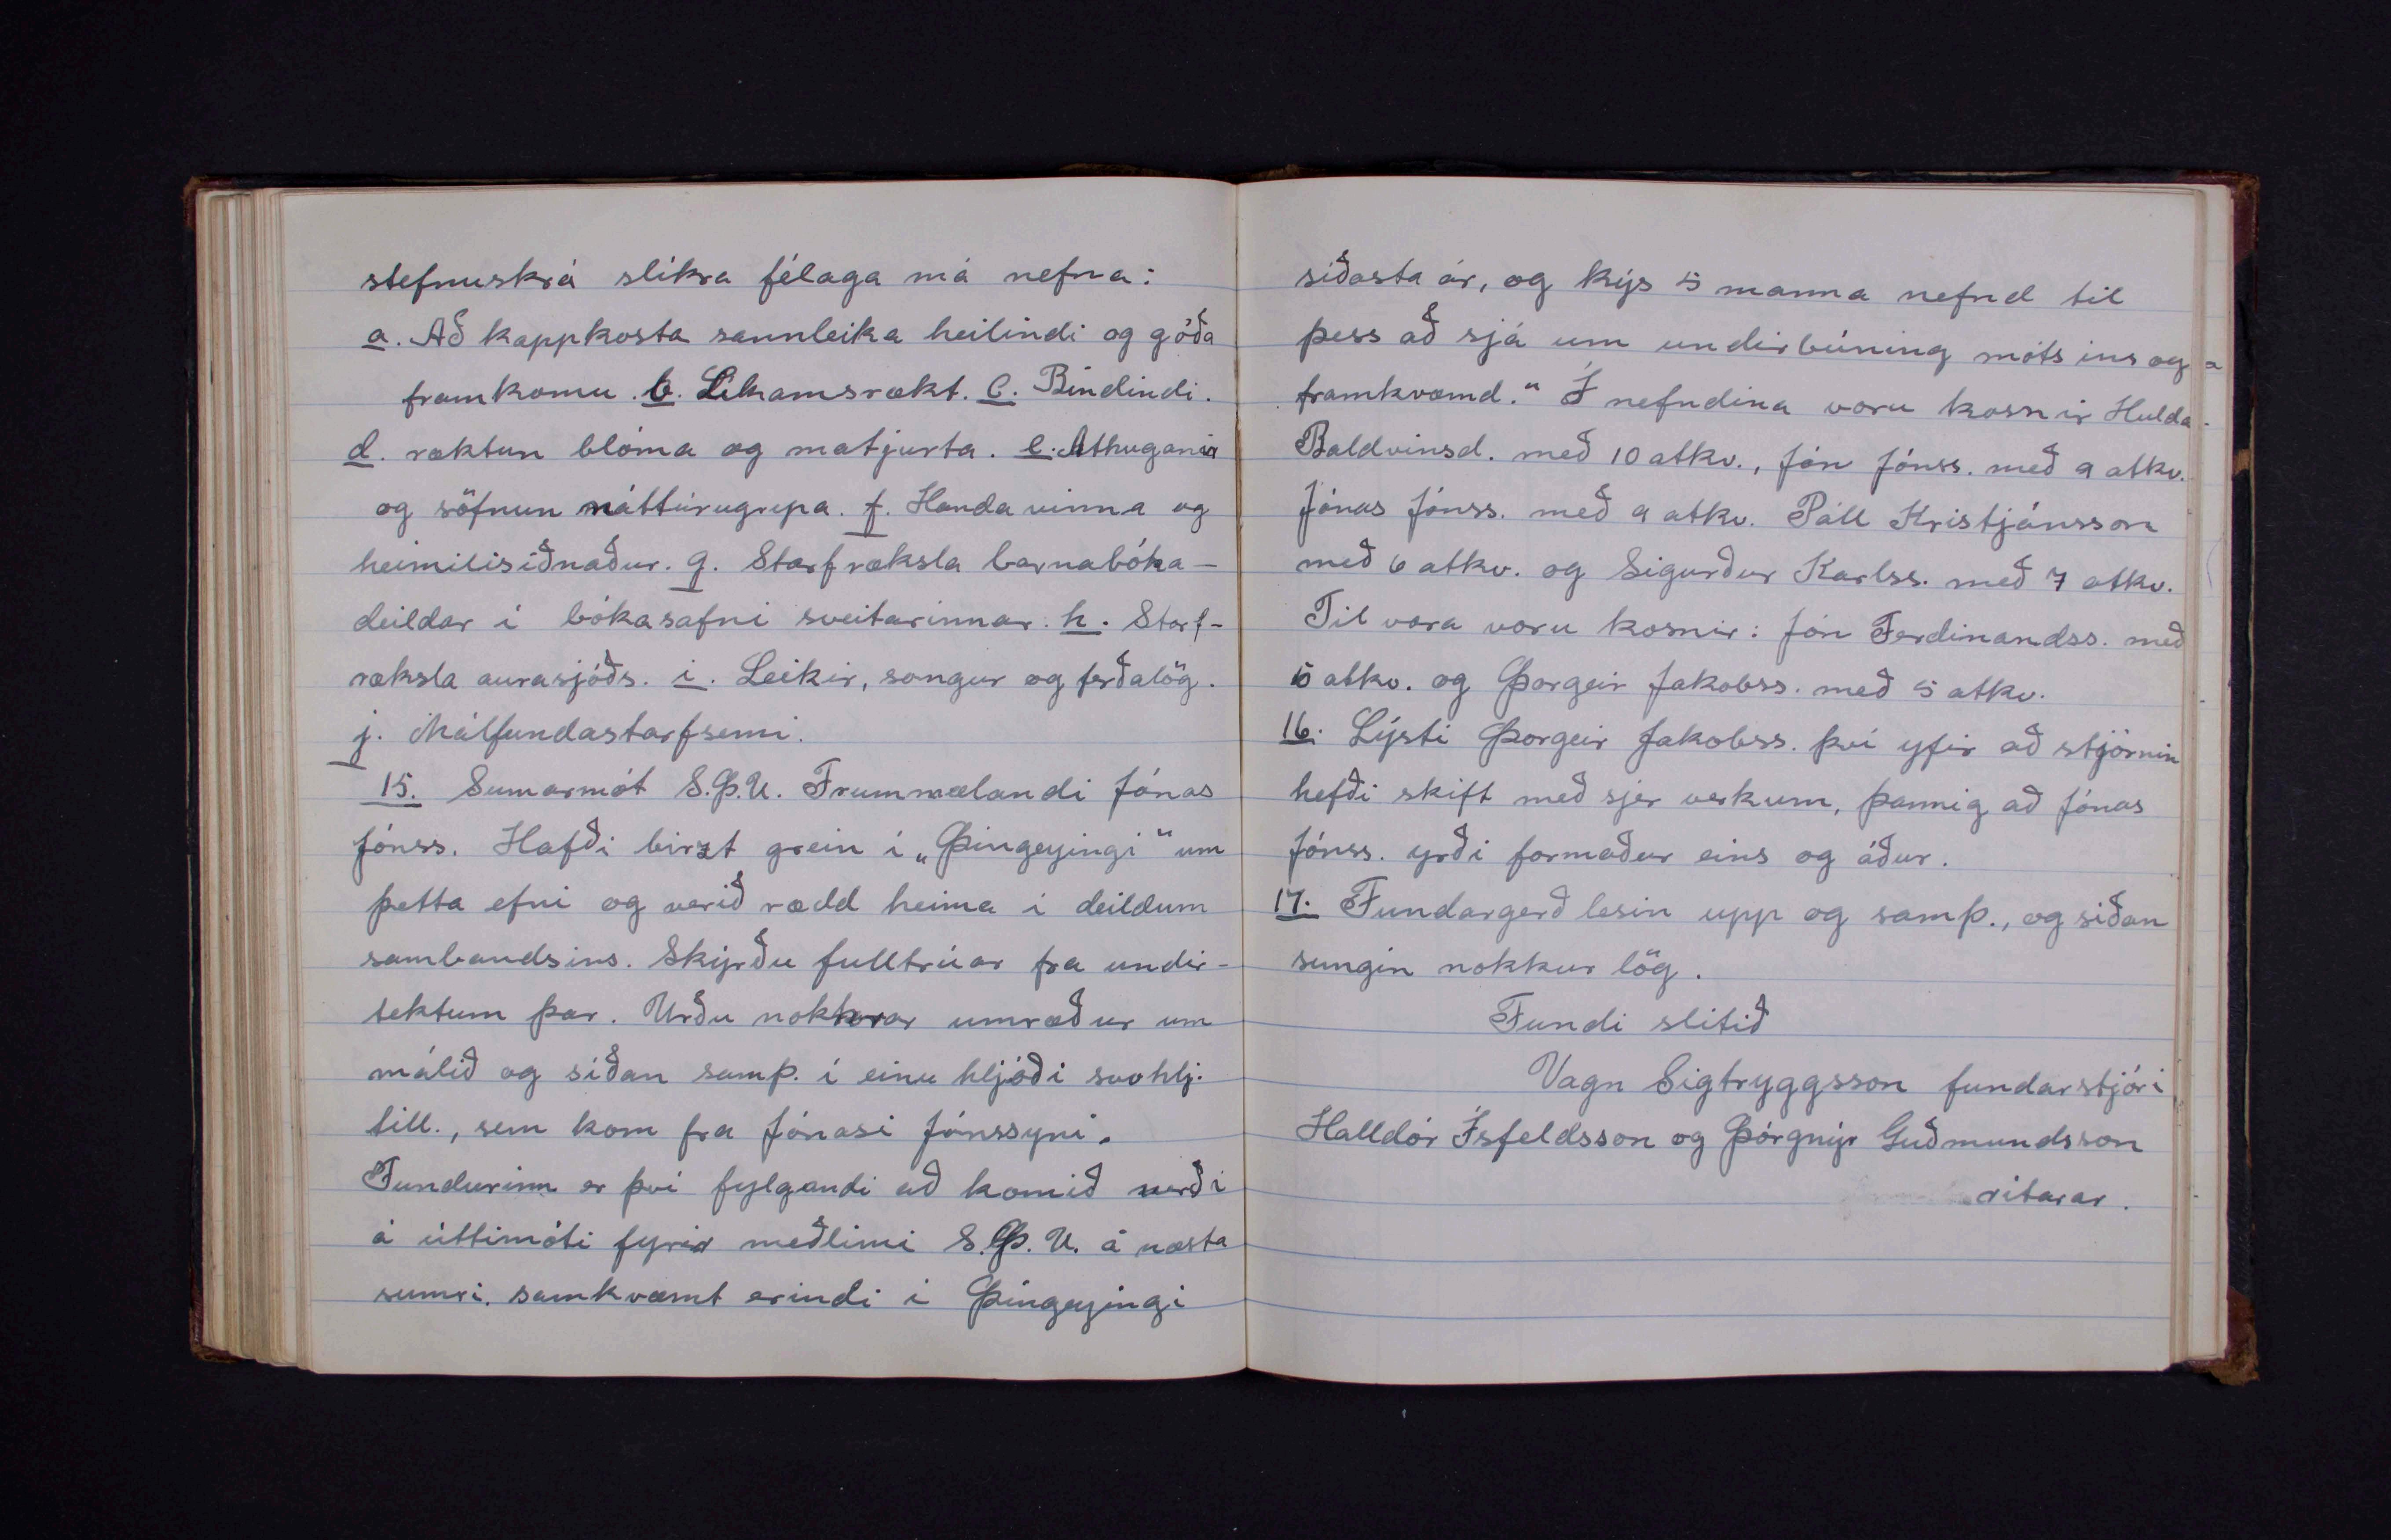 stefnuskrá slíkra félaga má nefna:
a. Að kappkosta sannleika heilindi og góða
framkomu. b. Líkamsrækt. C. Bindindi.
d. ræktun blóma og matjurta. e. Athuganir
og söfnun náttúrugripa. f. Handavinna og
heimilisiðnaður. g. Starfræksla barnabóka-
deildar í bókasafni sveitarinnar. h. Starf-
ræksla aurasjóðs. i. Leikir, songur og ferðalög.
j. Málfundastarfsemi.
15. Sumarmót S.Þ.U. Frummælandi Jónas
Jónss. Hafði birzt grein í „Þingeyingi“ um
þetta efni og verið rædd heima í deildum
sambandsins. Skýrðu fulltrúar fra undir-
tektum þar. Urðu nokkrar umræður um
málið og síðan samþ. í einu hljóði svohlj.
till., sem kom fra Jónasi Jónssyni.
Fundurinn er því fylgandi að komið verði
á úttimóti fyrir meðlimi S.Þ.U. á næsta
sumri. samkvæmt erindi í Þingeyingi
síðasta ár, og kýs 5 manna nefnd til
þess að sjá um undirbúning mótsins og
framkvæmd.“ Í nefndina voru kosnir Hulda
Baldvinsd. með 10 atkv., Jón Jónss. með 9 atkv.
Jónas Jónss. með 9 atkv. Páll Kristjánsson
með 6 atkv. og Sigurður Karlss. með 7 atkv.
Til vara voru kosnir: Jón Ferdinandss. með
5 atkv. og Þorgeir Jakobss. með 5 atkv.
16. Lýsti Þorgeir Jakobss. því yfir að stjórnin
hefði skift með sjer verkum, þannig að Jónas
Jónss. yrði formaður eins og áður.
17. Fundargerð lesin upp og samþ., og síðan
sungin nokkur lög.
Fundi slitið
Vagn Sigtryggsson fundarstjóri
Halldór Ísfeldsson og Þórgnýr Guðmundsson
ritarar.